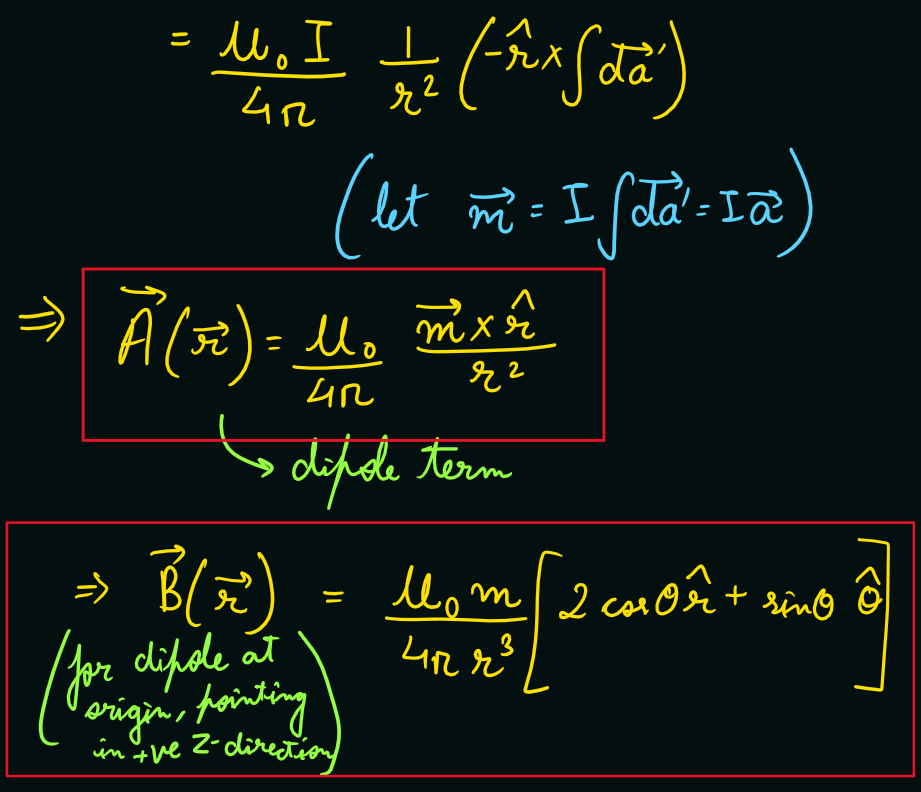 = μ₀I/4π 1/r² (-r̂ × ∫d⃗a')
(let m⃗ = I∫d⃗a' = Ia⃗)
⇒ A⃗(r⃗) = μ₀/4π m⃗ × r̂/r²
→ dipole term
⇒ B⃗(r⃗) = μ₀m/4πr³ [2 cosθ r̂ + sinθ θ̂]
(for dipole at
origin, pointing
in +ve Z-direction)